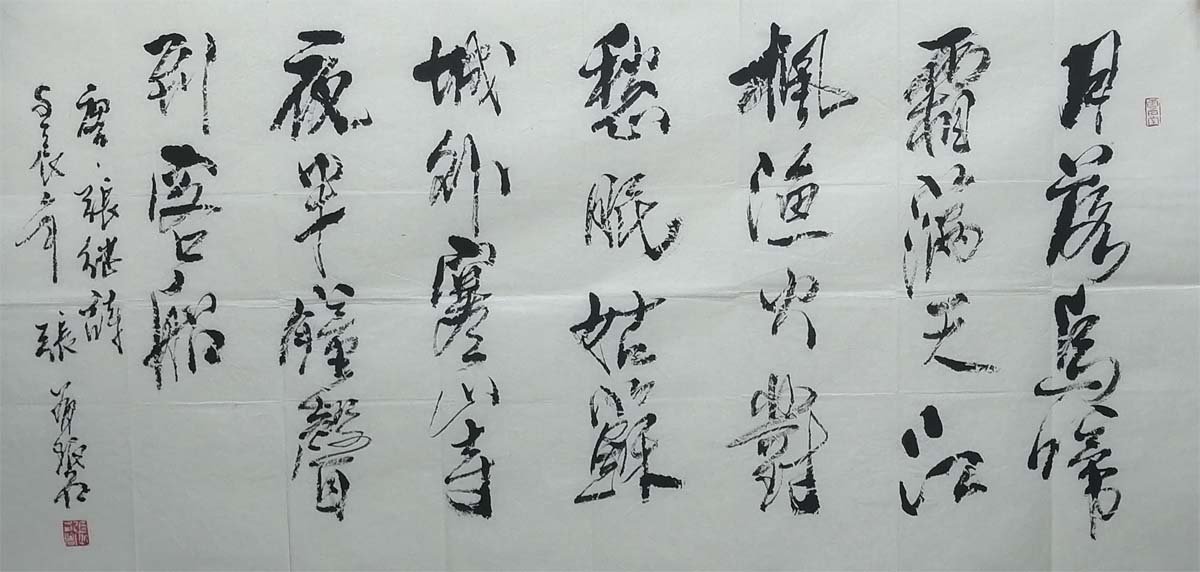 月落烏啼
霜滿天江
楓漁火對
愁眠姑蘇
城外寒山寺
夜半鐘聲
到客船
唐張継詩
張